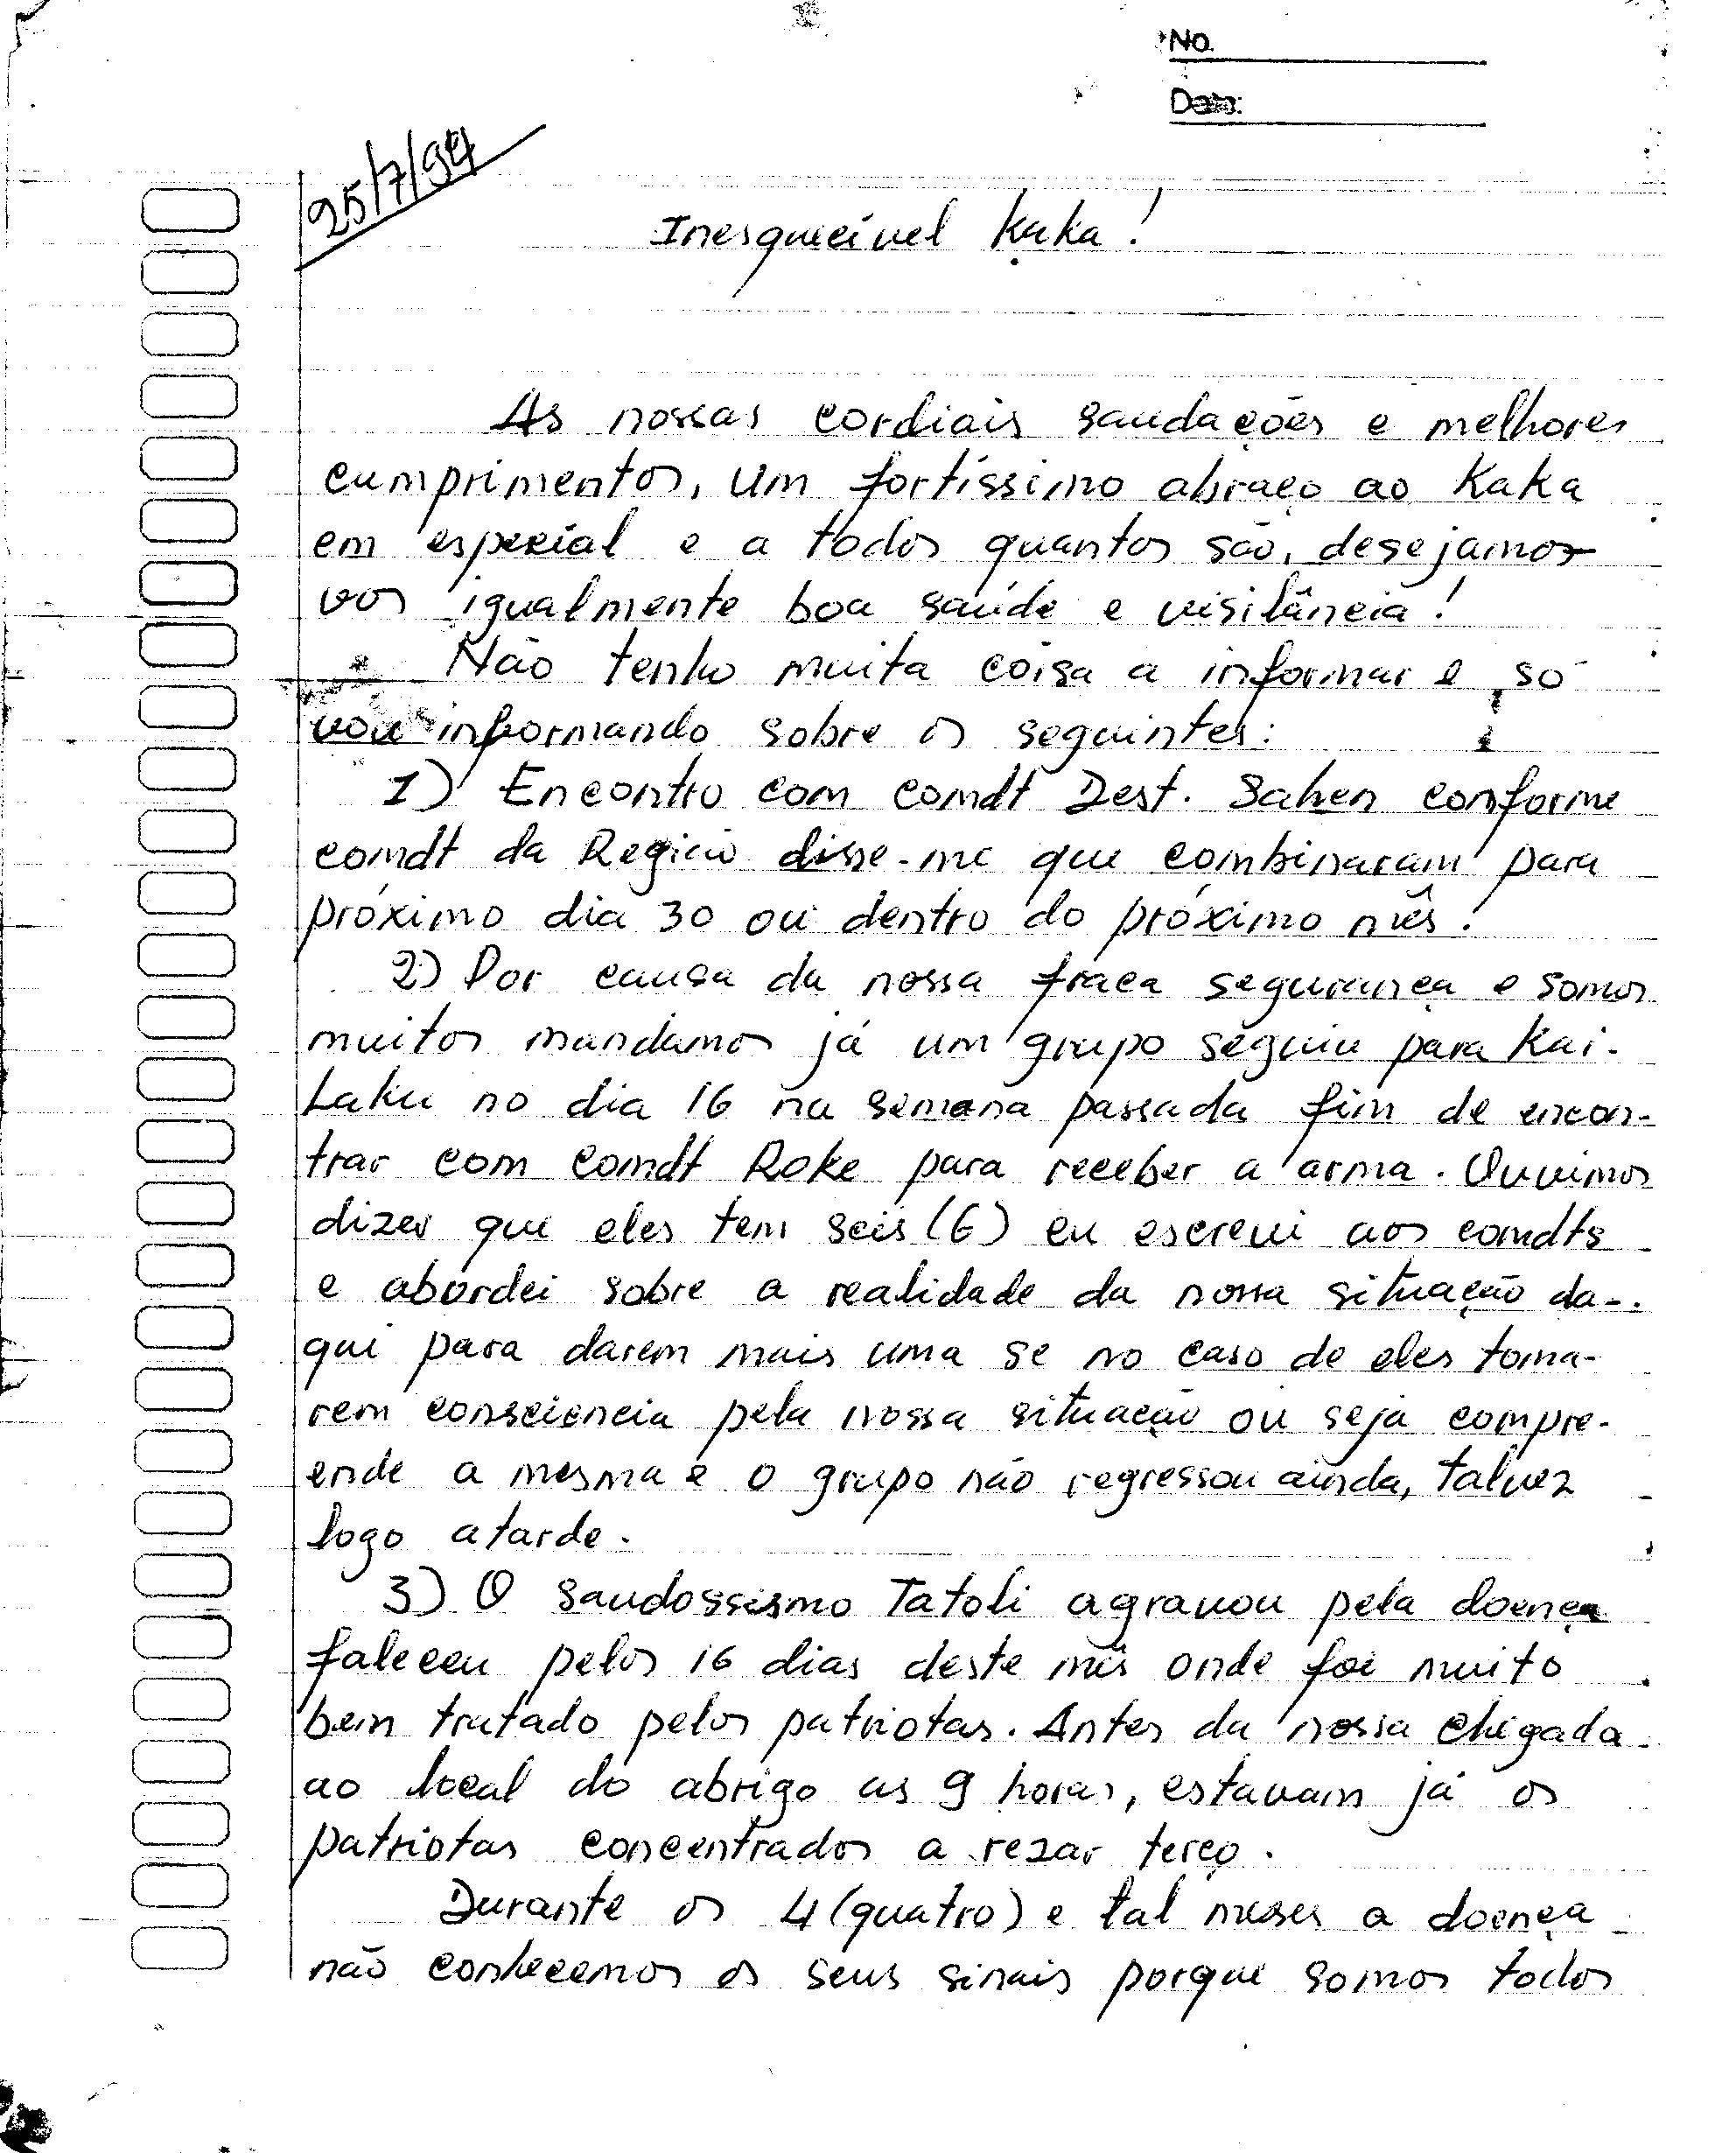 No.
Date:
25/7/94
Inesquecível Kaka!
As nossas cordiais saudações e melhores
cumprimentos, um fortíssimo abraço ao Kaka
em especial e a todos quantos são, desejamos
vos igualmente boa saúde e visilância!
Não tenho muita coisa a informar e só
vou informando sobre os seguintes:
1) Encontro com comdt Dest. Sahen conforme
comdt da Região disse-me que combinaram para
próximo dia 30 ou dentro do próximo mês.
2) Por causa da nossa fraca segurança e somos
muitos mandamos já um grupo seguiu para Kai-
Laku no dia 16 na semana passada fim de encon-
trar com comdt Roke para receber a arma. Ouvimos
dizer que eles tem seis (6) eu escrevi aos comdts
e abordei sobre a realidade da nossa situação da-
qui para darem mais uma se no caso de eles toma-
rem consciencia pela nossa situação ou seja compre-
ende a mesma e o grupo não regressou ainda, talvez
logo atarde.
3) O saudossismo Tatoli agravou pela doença
faleceu pelos 16 dias deste mês onde foi muito
bem tratado pelos patriotas. Antes da nossa chegada
ao local do abrigo as 9 horas, estavam já os
patriotas concentrados a rezar terço.
Durante os 4 (quatro) e tal meses a doença
não conhecemos os seus sinais porque somos todos